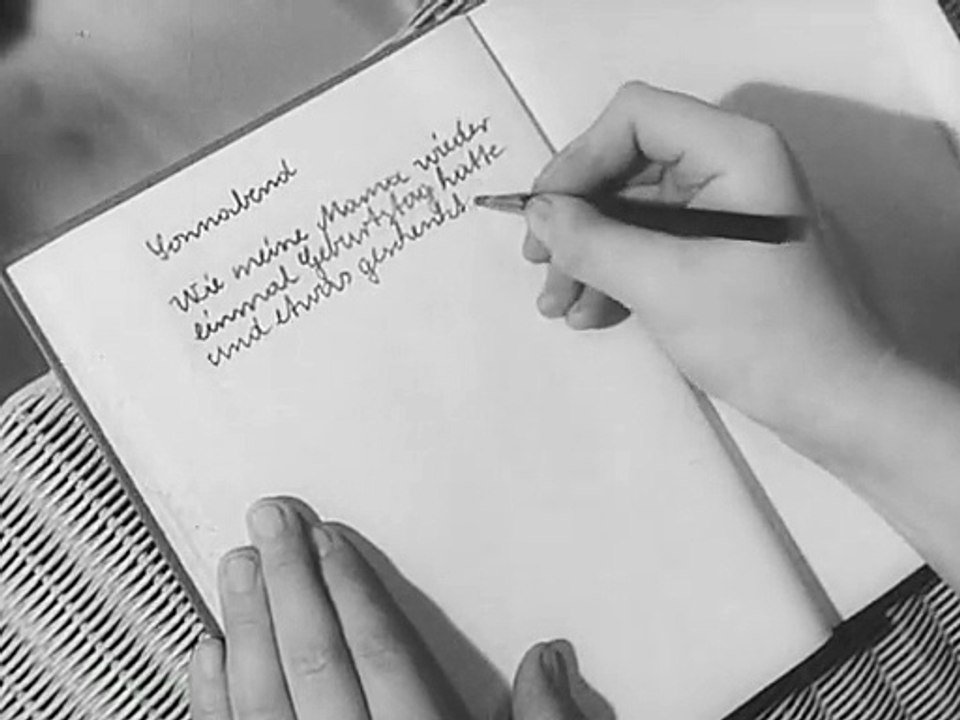 Sonnabend
Wie meine Mama wieder
einmal Geburtztag hatte
und etwas geschenkt